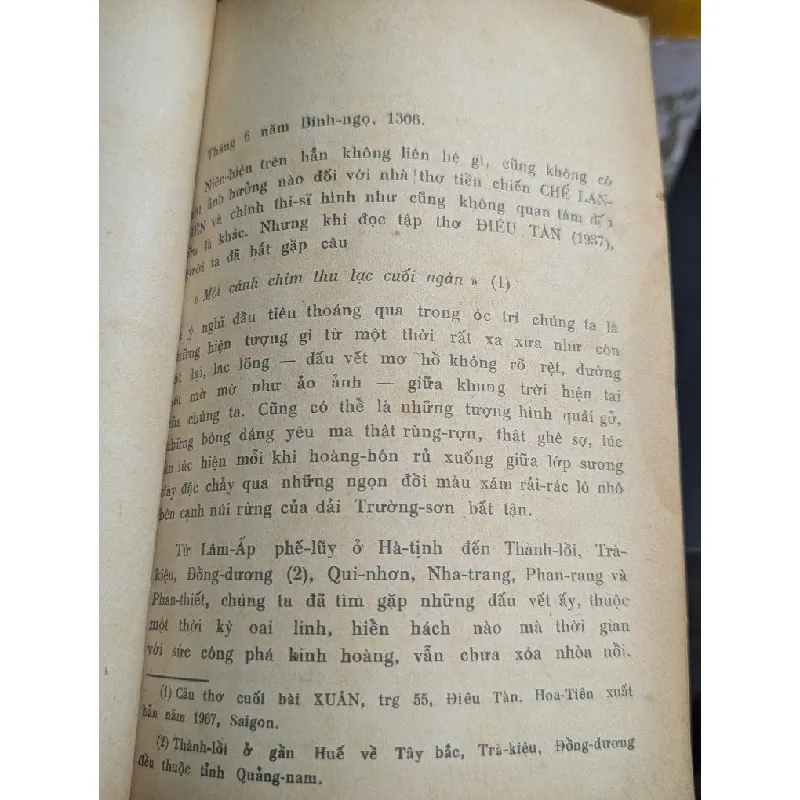 Tháng 6 năm Bính-ngọ, 1306.
Niên-hiệu trên hẳn không liên hệ gì, cũng không có
ảnh hưởng nào đối với nhà thơ tiền chiến CHẾ LAN-
và chính thi-sĩ hình như cũng không quan tâm đến
là khác. Nhưng khi đọc tập thơ ĐIÊU TÀN (1937),
người ta đã bắt gặp câu
« Một cánh chim thu lạc cuối ngàn » (1)
ý nghĩ đầu tiên thoáng qua trong óc trí chúng ta là
những hiện tượng gì từ một thời rất xa xưa như còn
lại, lạc lõng — dấu vết mơ hồ không rõ rệt, dường
mờ mờ như ảo ảnh — giữa khung trời hiện tại
của chúng ta. Cũng có thể là những tượng hình quái gở,
những bóng dáng yêu ma thật rùng-rợn, thật ghê sợ, lúc
lúc hiện mỗi khi hoàng-hôn rủ xuống giữa lớp sương
dày đặc chảy qua những ngọn đồi màu xám rải-rác lô nhô
bên cạnh núi rừng của dải Trường-sơn bất tận.
Từ Lâm-Ấp phế-lũy ở Hà-tịnh đến Thành-lồi, Trà-
kiệu, Đồng-dương (2), Qui-nhơn, Nha-trang, Phan-rang và
Phan-thiết, chúng ta đã tìm gặp những dấu vết ấy, thuộc
một thời kỳ oai linh, hiển hách nào mà thời gian
với sức công phá kinh hoàng, vẫn chưa xóa nhòa nổi.
(1) Câu thơ cuối bài XUÂN, trg 55, Điêu Tàn. Hoa-Tiên xuất
bản năm 1967, Saigon.
(2) Thành-lồi ở gần Huế về Tây bắc, Trà-kiệu, Đồng-dương
đều thuộc tỉnh Quảng-nam.